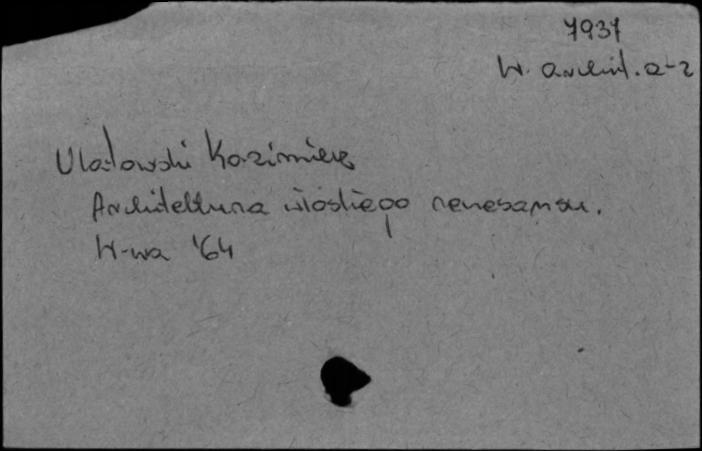 7937
W. archit. a-z
Ulatowski Kazimierz
Architektura włoskiego renesansu.
W-wa '64